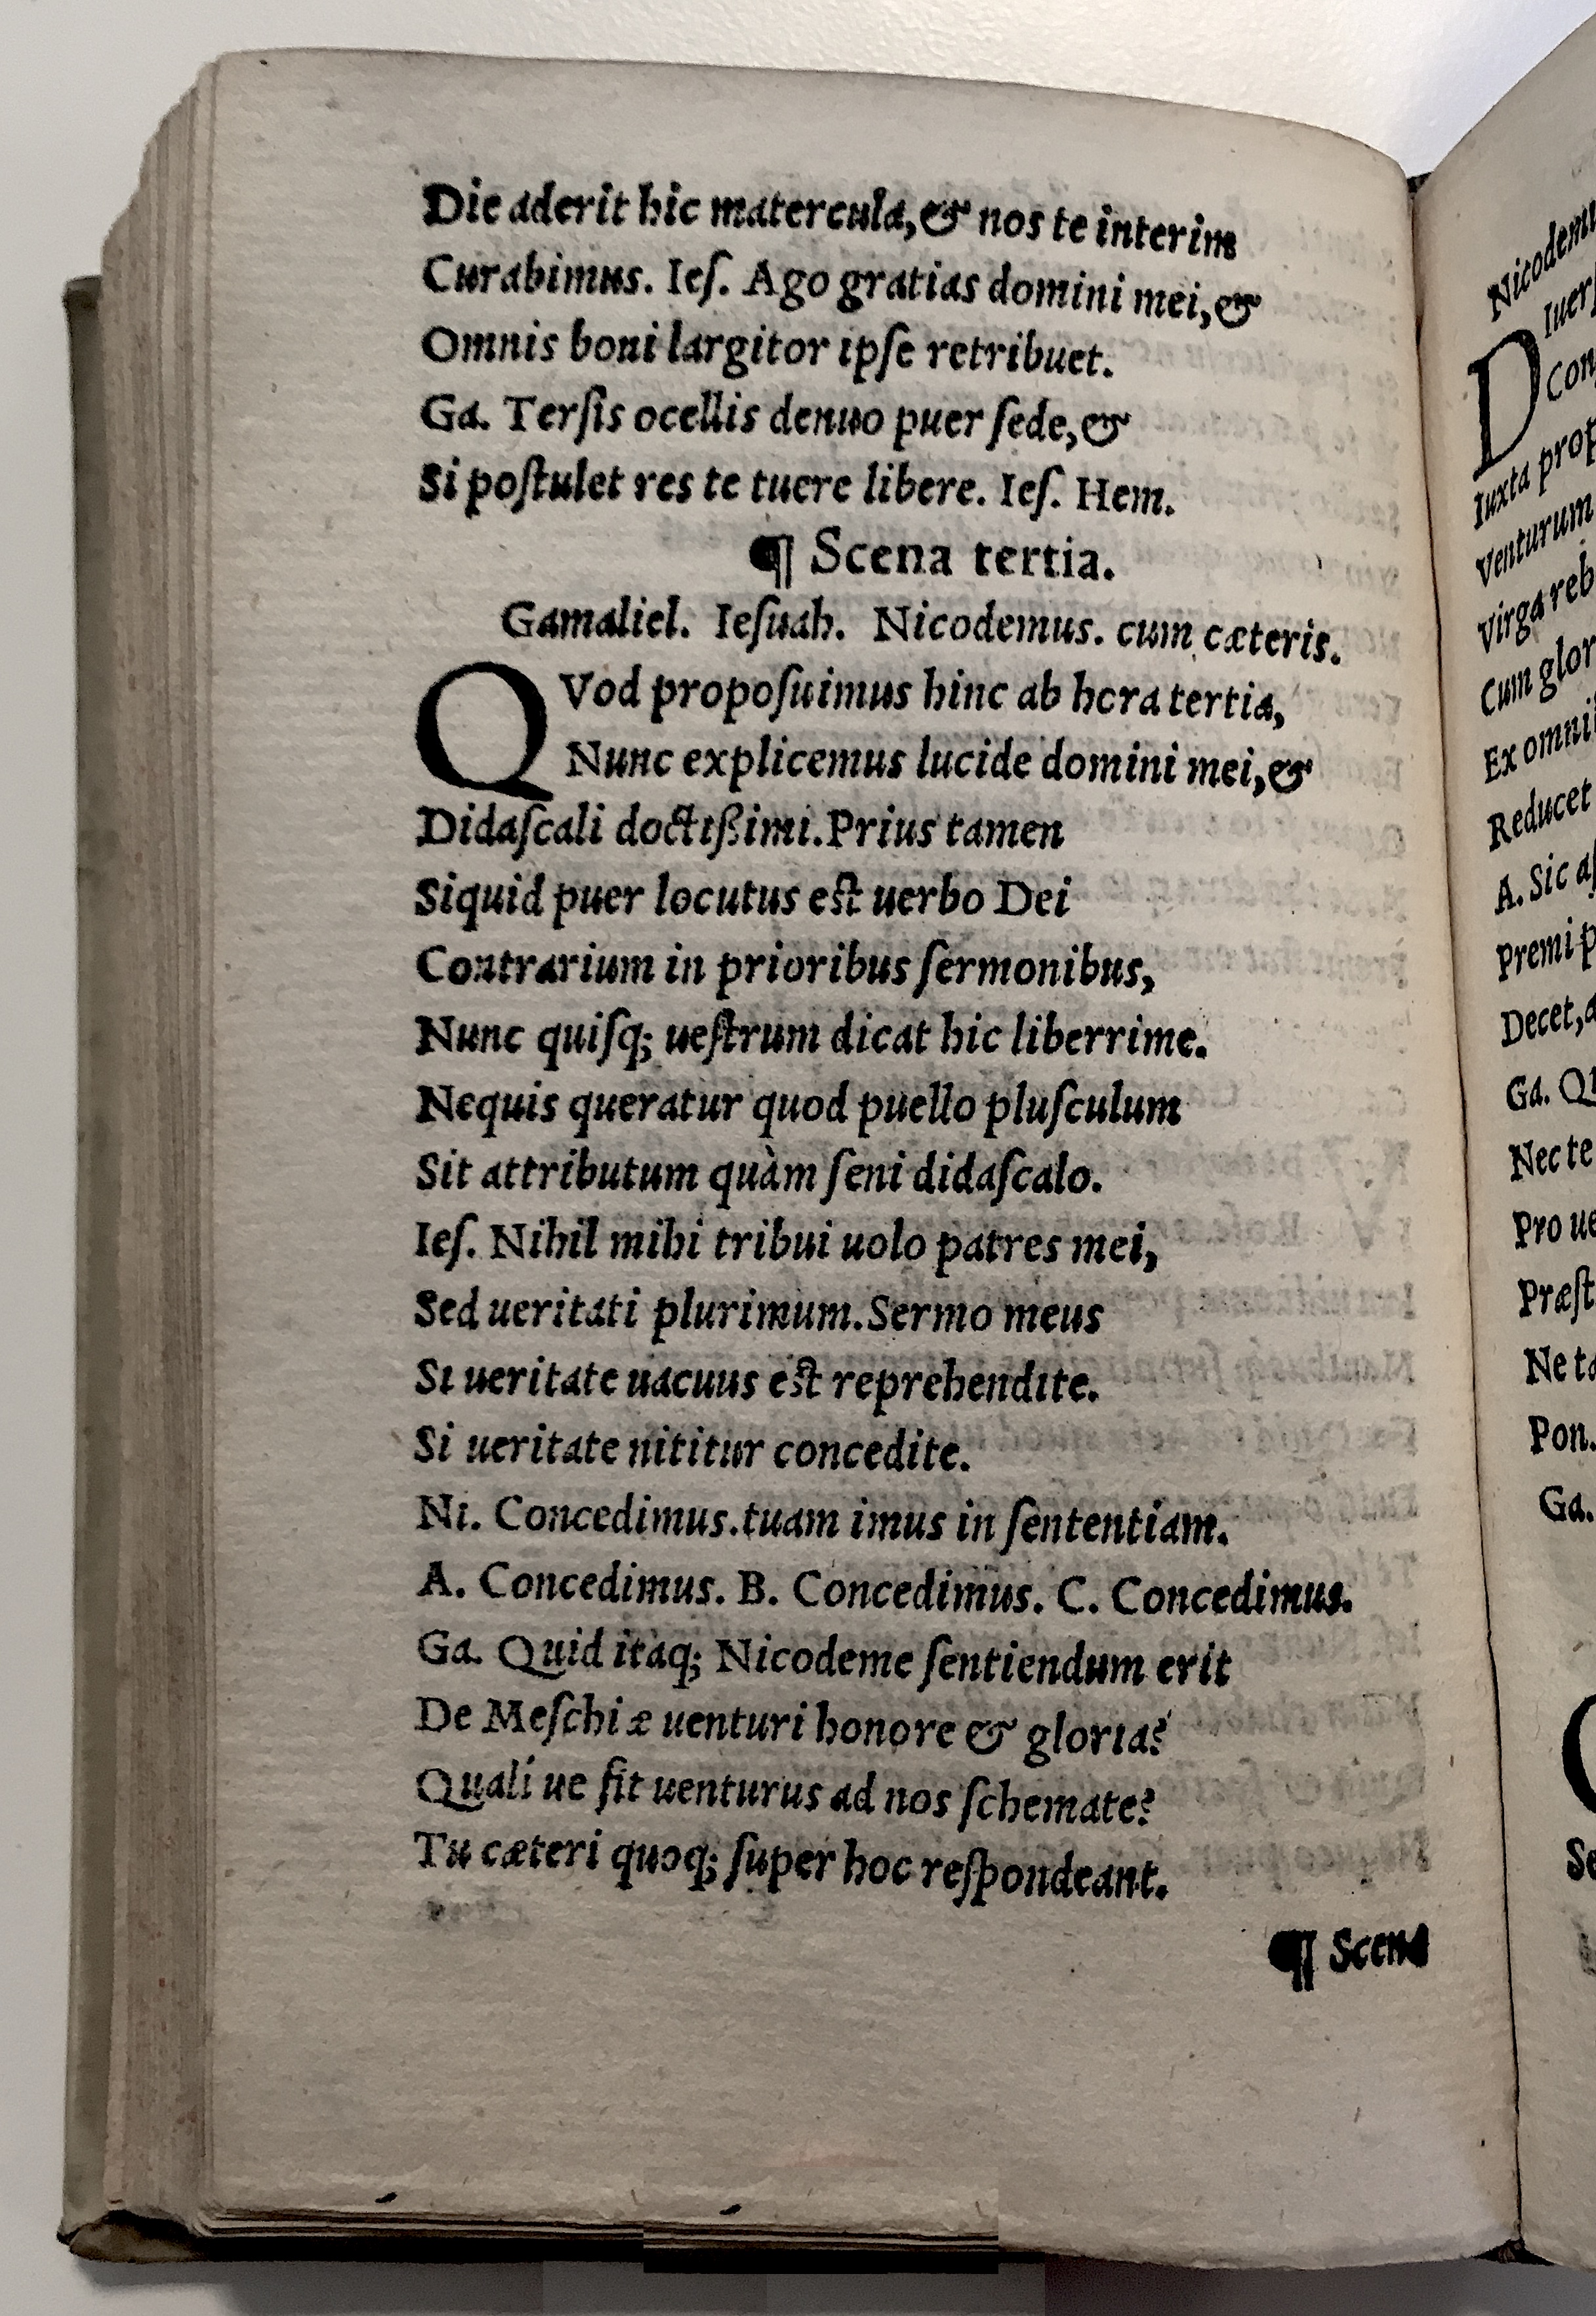 Die aderit hic matercula,& nos te interim
Curabimus. Ieſ. Ago gratias domini mei,&
Omnis boni largitor ipſe retribuet.
Ga. Terſis ocellis denuo puer ſede,&
Si poſtulet res te tuere libere. Ieſ. Hem.
¶ Scena tertia.
Gamaliel. Ieſuah. Nicodemus. cum cæteris.
QVod propoſuimus hinc ab hora tertia,
Nunc explicemus lucide domini mei,&
Didaſcali doctißimi.Prius tamen
Siquid puer locutus eſt uerbo Dei
Contrarium in prioribus ſermonibus,
Nunc quiſq; ueſtrum dicat hic liberrime.
Nequis queratur quod puello pluſculum
Sit attributum quàm ſeni didaſcalo.
Ieſ. Nihil mihi tribui uolo patres mei,
Sed ueritati plurimum.Sermo meus
Si ueritate uacuus eſt reprehendite.
Si ueritate nititur concedite.
Ni. Concedimus.tuam imus in ſententiam.
A. Concedimus. B. Concedimus. C. Concedimus.
Ga. Quid itaq; Nicodeme ſentiendum erit
De Meſchiæ uenturi honore & gloria?
Quali ue ſit uenturus ad nos ſchemate?
Tu cæteri quoq; ſuper hoc reſpondeant.
¶ Scena
Con
Iuxta prop
Venturum
Virga reb
Cum glor
Ex omni
Reducet
A. Sic aſ
Premi p
Decet,a
Ga. Qu
Nec te
Pro ue
Præſt
Ne ta
Pon.
Ga.
Se